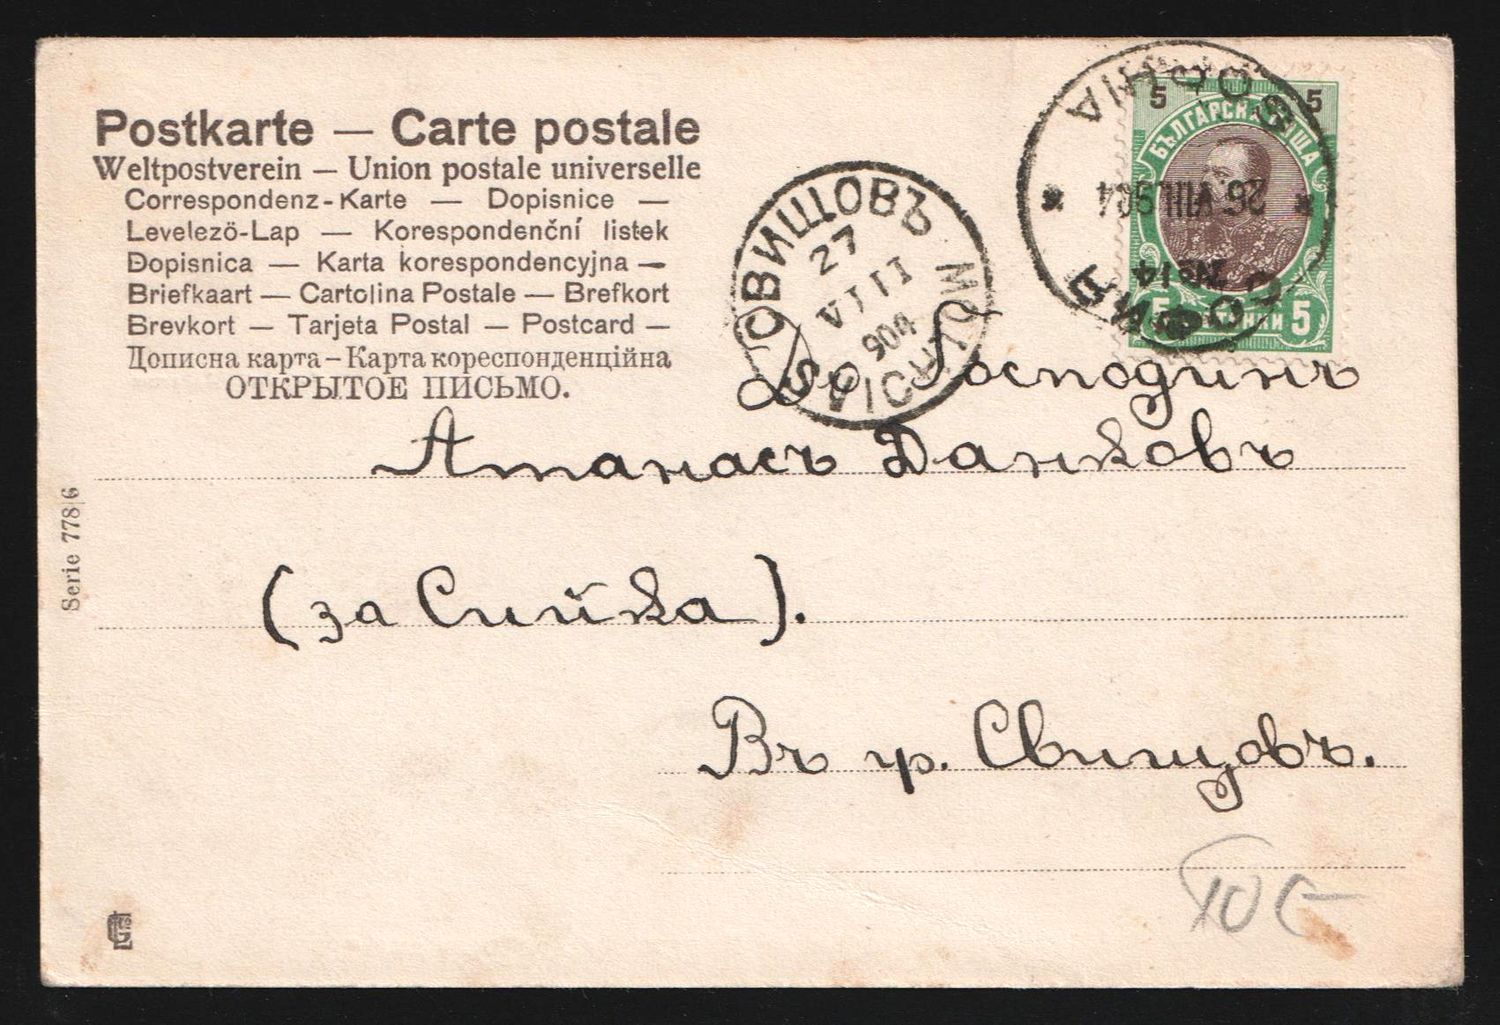 Postkarte — Carte postale
Weltpostverein — Union postale universelle
Correspondenz-Karte — Dopisnice —
Levelezö-Lap — Korespondenční listek
Dopisnica — Karta korespondencyjna —
Briefkaart — Cartolina Postale — Brefkort
Brevkort — Tarjeta Postal — Postcard —
Дописна карта – Карта кореспонденційна
ОТКРЫТОЕ ПИСЬМО.
СВИЩОВЪ
27
VIII
904
SOPHIA
26.VIII.904
№14
5 5
БЪЛГАРСКА ПОЩА
5 СТОТИНКИ 5
До Господинъ
Атанасъ Данковъ
(за Сийка).
Въ гр. Свищовъ.
Serie 778/6